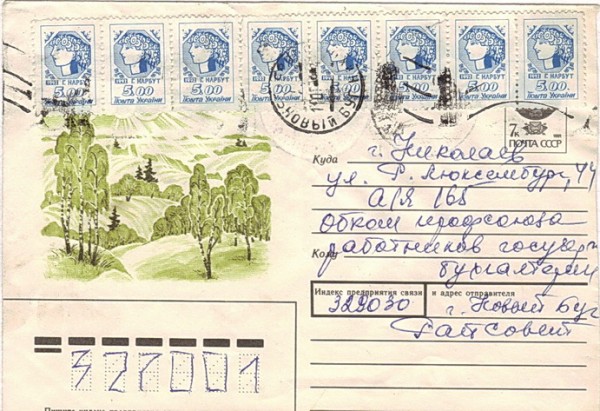 Г. НАРБУТ Г. НАРБУТ Г. НАРБУТ Г. НАРБУТ Г. НАРБУТ Г. НАРБУТ Г. НАРБУТ Г. НАРБУТ
5.00 5.00 5.00 5.00 5.00 5.00 5.00 5.00
Пошта України Пошта України Пошта України Пошта України Пошта України Пошта України Пошта України Пошта України
7к
ПОЧТА СССР
Куда г. Николаев
ул. Р. Люксембург, 44
А/Я 165
Обком профсоюза
Кому работников госучр
бухгалтерии
Индекс предприятия связи и адрес отправителя
329030 г. Новый Буг
Райсовет
327001